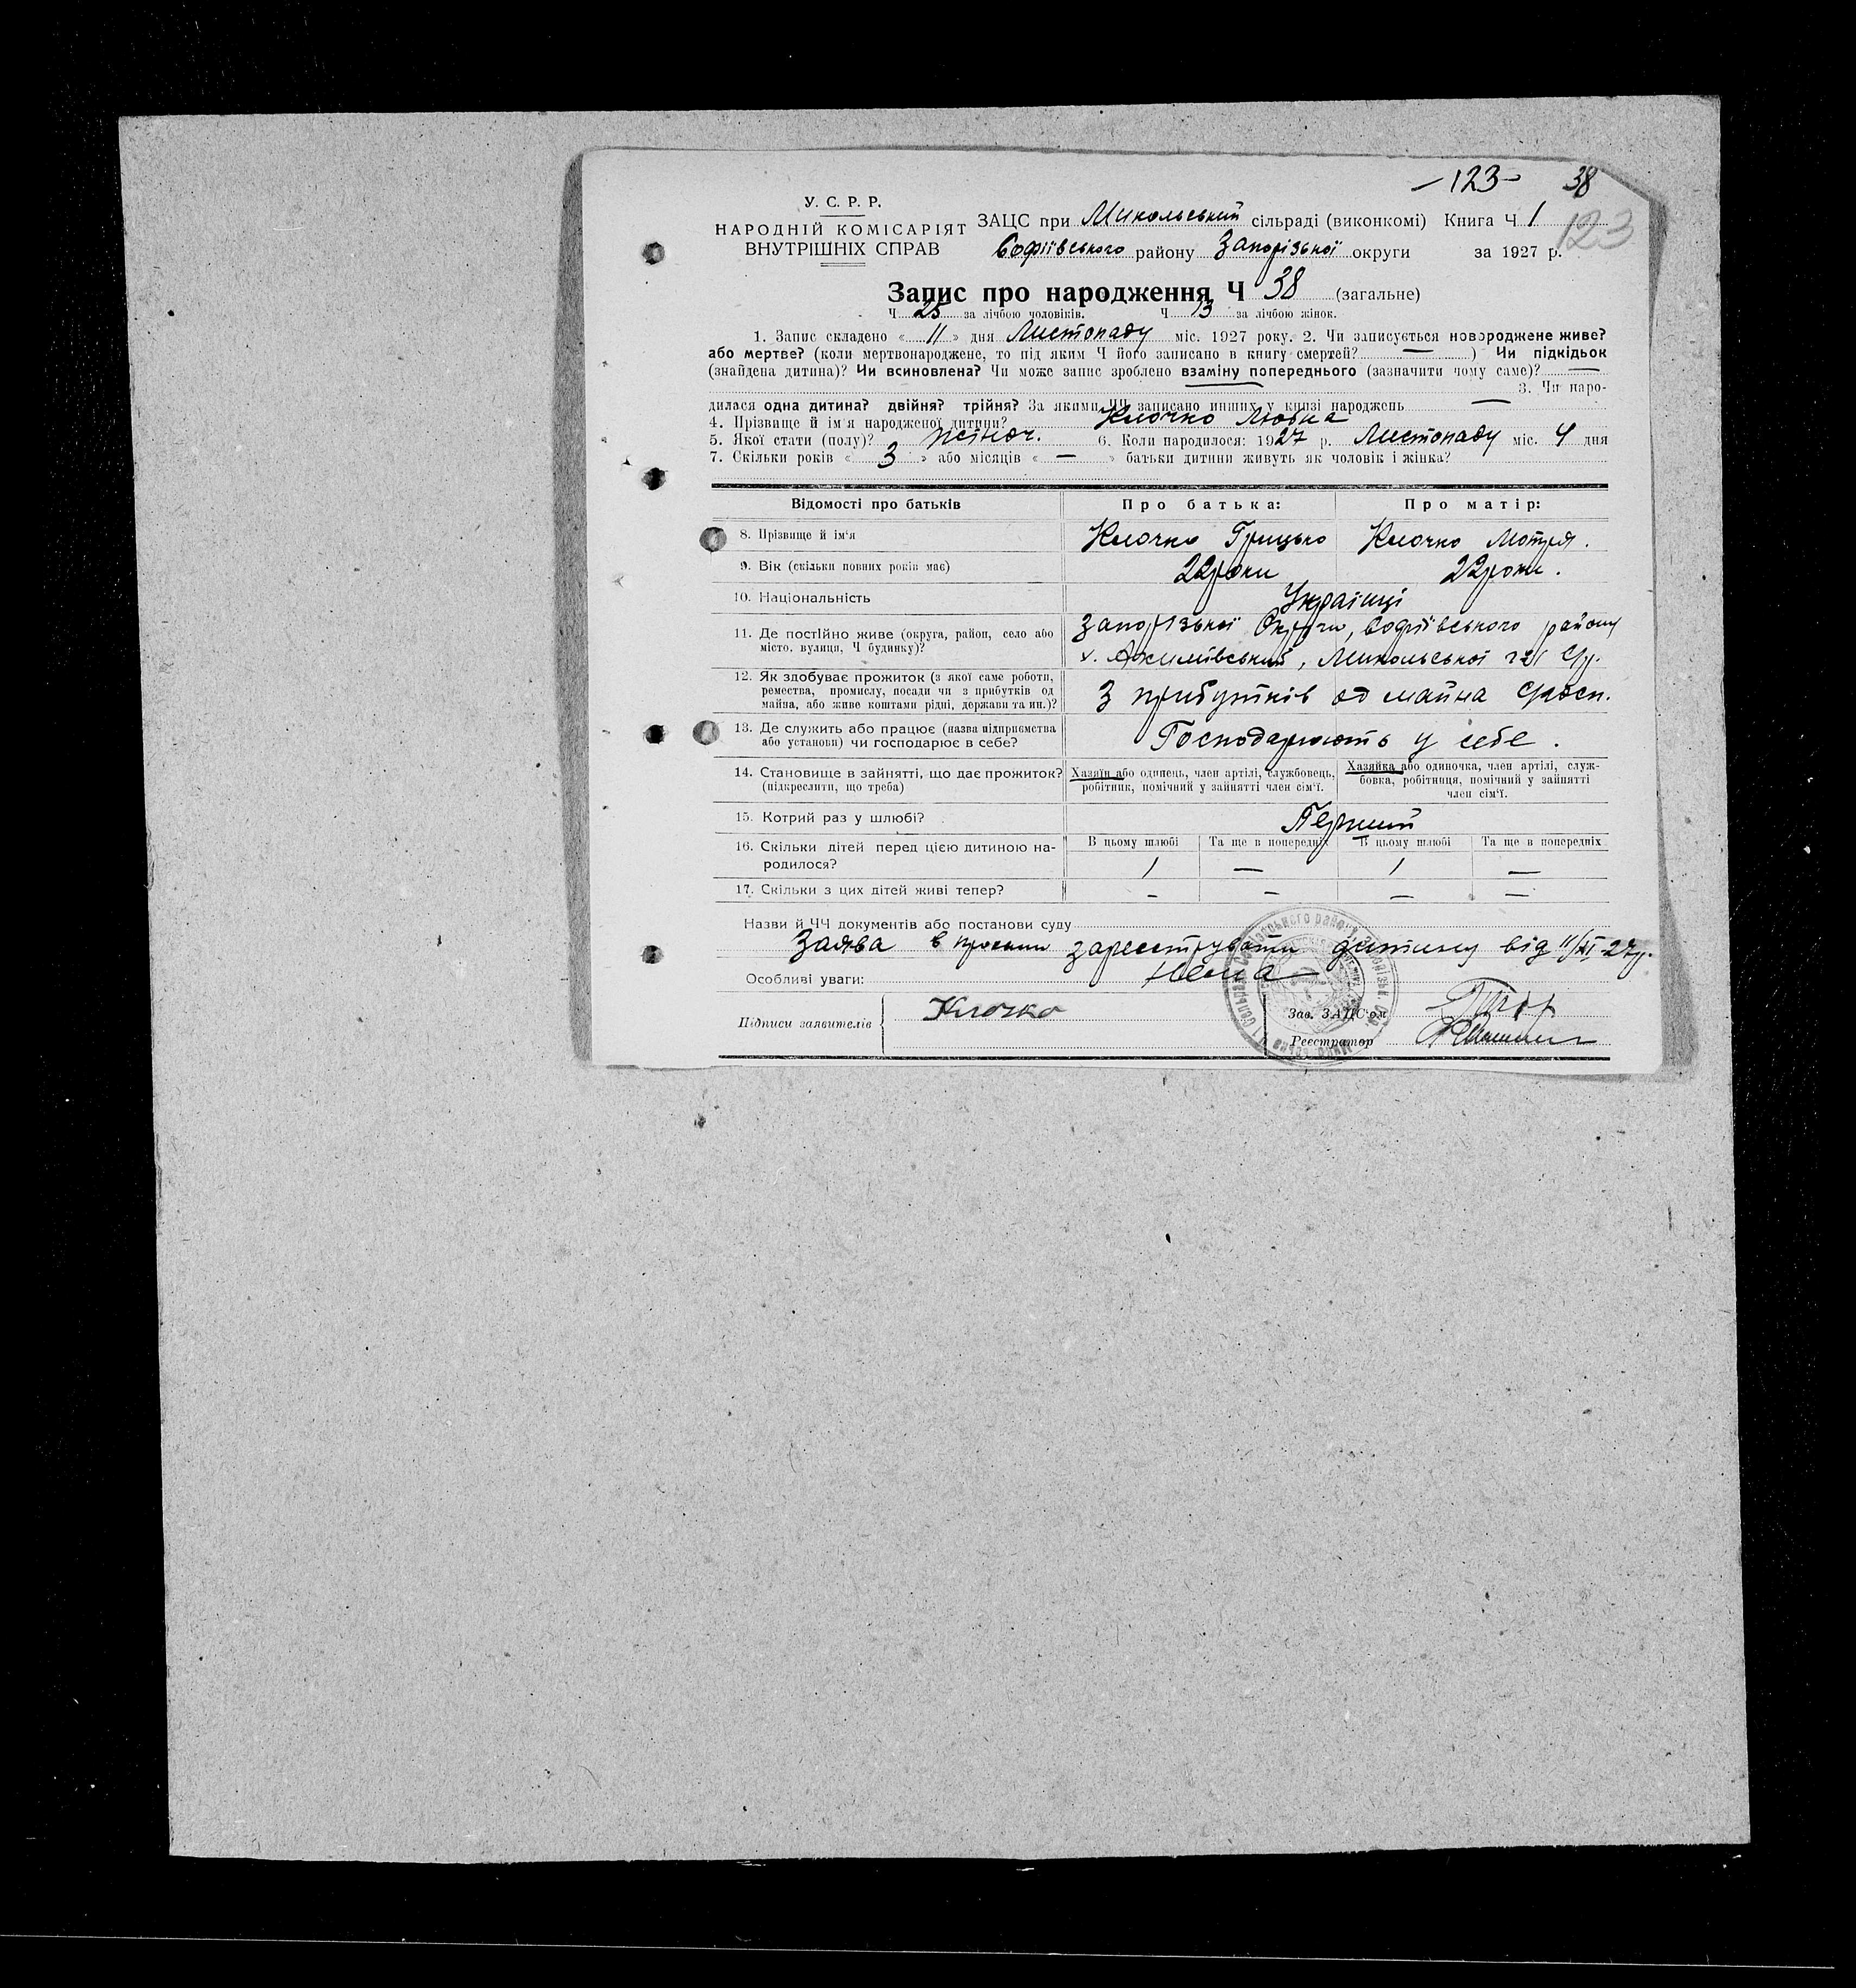 — 123 — 38
123
У. С. Р. Р.
НАРОДНІЙ КОМІСАРІЯТ
ВНУТРІШНІХ СПРАВ
ЗАЦС при Микольський сільраді (виконкомі) Книга Ч 1
Софіївського району Запорізької округи за 1927 р.
Запис про народження Ч 38 (загальне)
Ч 25 за лічбою чоловіків. Ч 13 за лічбою жінок.
1. Запис складено « 11 » дня Листопаду міс. 1927 року. 2. Чи записується новороджене живе?
або мертве? (коли мертвонароджене, то під яким Ч його записано в книгу смертей? — ) Чи підкідьок
(знайдена дитина)? Чи всиновлена? Чи може запис зроблено взаміну попереднього (зазначити чому саме)? —
3. Чи наро-
дилася одна дитина? двійня? трійня? За якими ЧЧ записано инших у книзі народжень —
4. Прізвище й ім'я народженої дитини? Клочко Любка
5. Якої стати (полу)? жіноч. 6. Коли народилося: 1927 р. Листопаду міс. 4 дня
7. Скільки років « 3 » або місяців « — » батьки дитини живуть як чоловік і жінка?
Відомості про батьків Про батька: Про матір:
8. Прізвище й ім'я Клочко Грицько Клочко Мотря.
9. Вік (скільки повних років має) 22 роки 22 роки.
10. Національність Українці
11. Де постійно живе (округа, район, село або
місто, вулиця, Ч будинку)?
Запорізької Округи, Софіївського району
х. , Микольської с/Р
12. Як здобуває прожиток (з якої саме роботи,
ремества, промислу, посади чи з прибутків од
майна, або живе коштами рідні, держави та ин.)?
З прибутків од майна
13. Де служить або працює (назва підприємства
або установи) чи господарює в себе?
Господарюють у себе.
14. Становище в зайнятті, що дає прожиток?
(підкреслити, що треба)
Хазяїн або одинець, член артілі, службовець,
робітник, помічний у зайнятті член сім'ї.
Хазяйка або одиночка, член артілі, служ-
бовка, робітниця, помічний у зайнятті
член сім'ї.
15. Котрий раз у шлюбі? Перший
16. Скільки дітей перед цією дитиною на-
родилося?
В цьому шлюбі Та ще в попередніх В цьому шлюбі Та ще в попередніх
1 — 1 —
17. Скільки з цих дітей живі тепер? — — — —
Назви й ЧЧ документів або постанови суду
Заява в зареєструвати дитину від 11/XI 27р.
Особливі уваги: Нема
Підписи заявителів Клочко
Зав. ЗАЦС'ом
Реєстратор